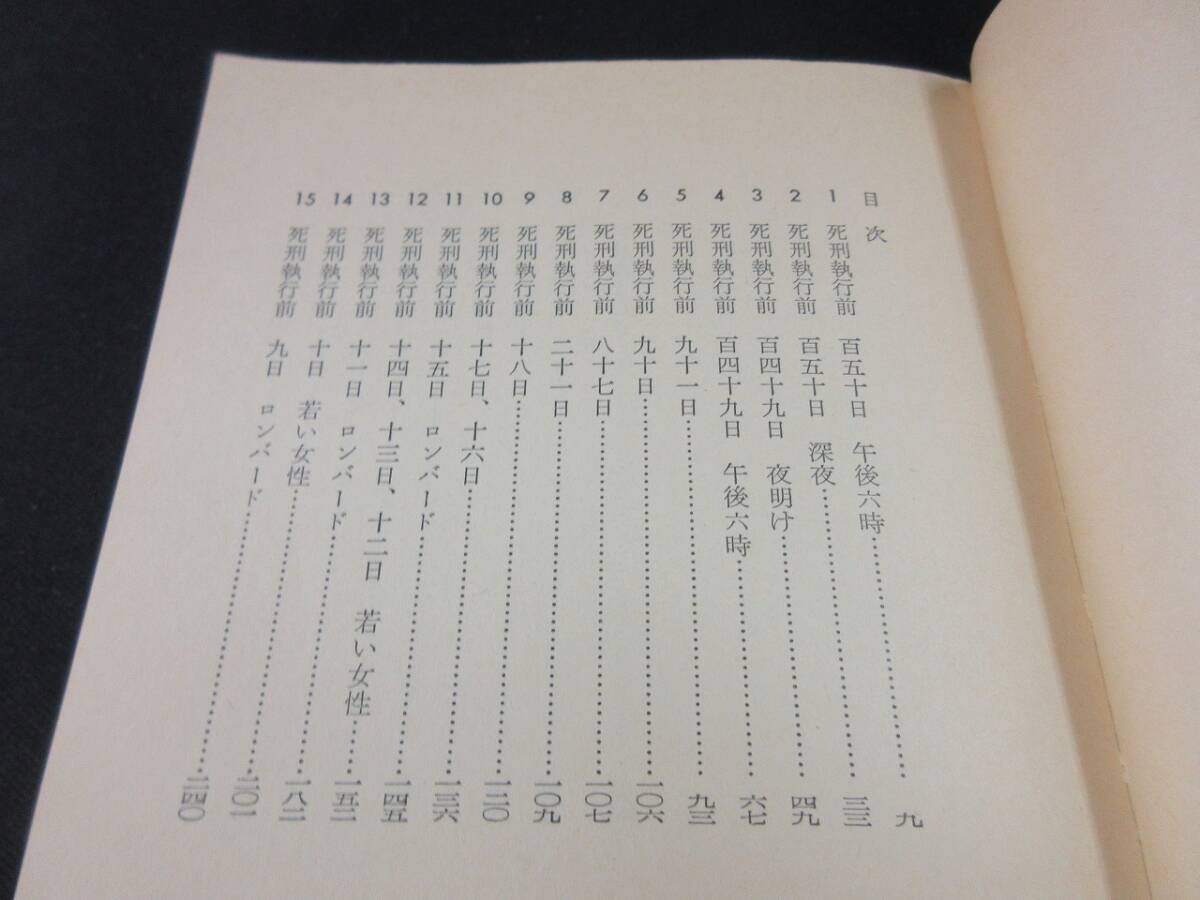 目次
1 死刑執行前 百五十日 午後六時……………九
2 死刑執行前 百五十日 深夜……………三三
3 死刑執行前 百四十九日 夜明け……………四九
4 死刑執行前 百四十九日 午後六時……………六七
5 死刑執行前 九十一日……………九三
6 死刑執行前 九十日……………一〇六
7 死刑執行前 八十七日……………一〇七
8 死刑執行前 二十一日……………一〇九
9 死刑執行前 十八日……………一二〇
10 死刑執行前 十七日、十六日……………一三六
11 死刑執行前 十五日 ロンバード……………一四五
12 死刑執行前 十四日、十三日、十二日 若い女性……一五二
13 死刑執行前 十一日 ロンバード……………一八二
14 死刑執行前 十日 若い女性……………二〇一
15 死刑執行前 九日 ロンバード……………二四〇